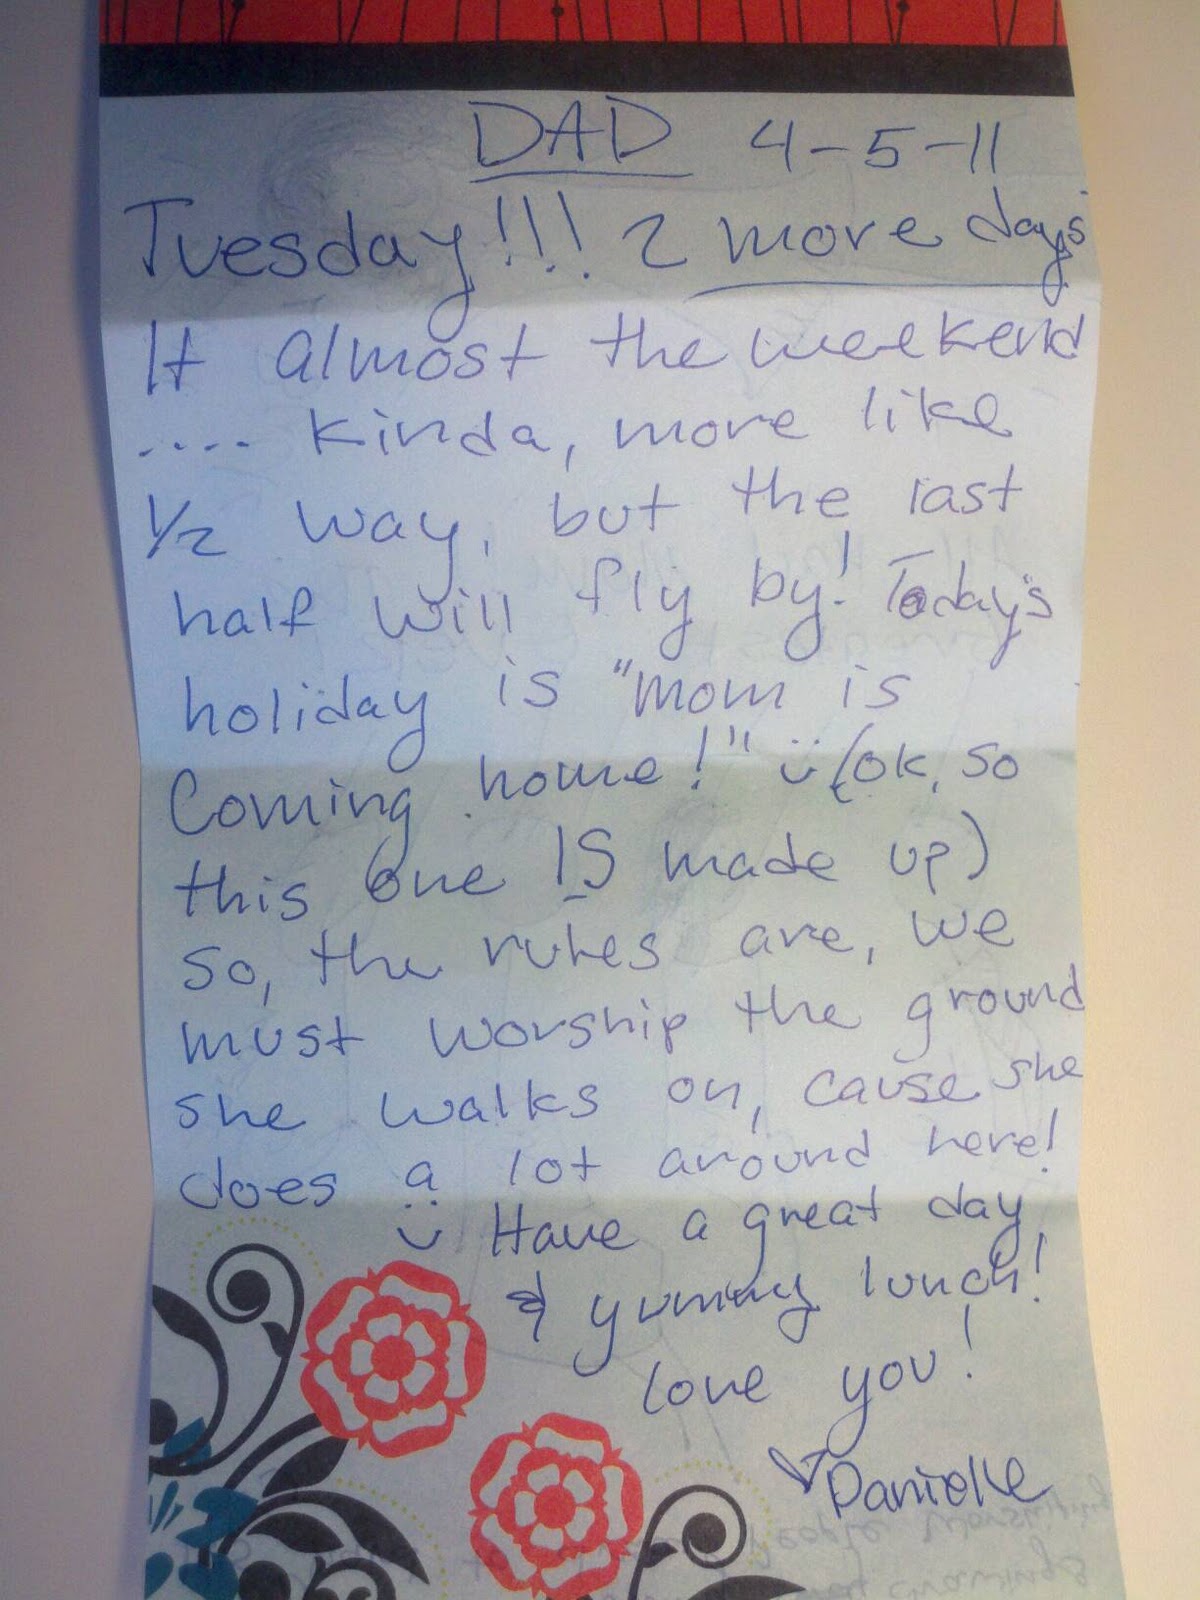 DAD 4-5-11
Tuesday!!! 2 more days
It almost the weekend
.... kinda, more like
1/2 way, but the last
half will fly by! Today's
holiday is "mom is
Coming home!" :) (ok, so
this one IS made up)
so, the rules are, we
must worship the ground
she walks on, cause she
does a lot around here!
:) Have a great day
& yummy lunch!
love you!
♥ Danielle